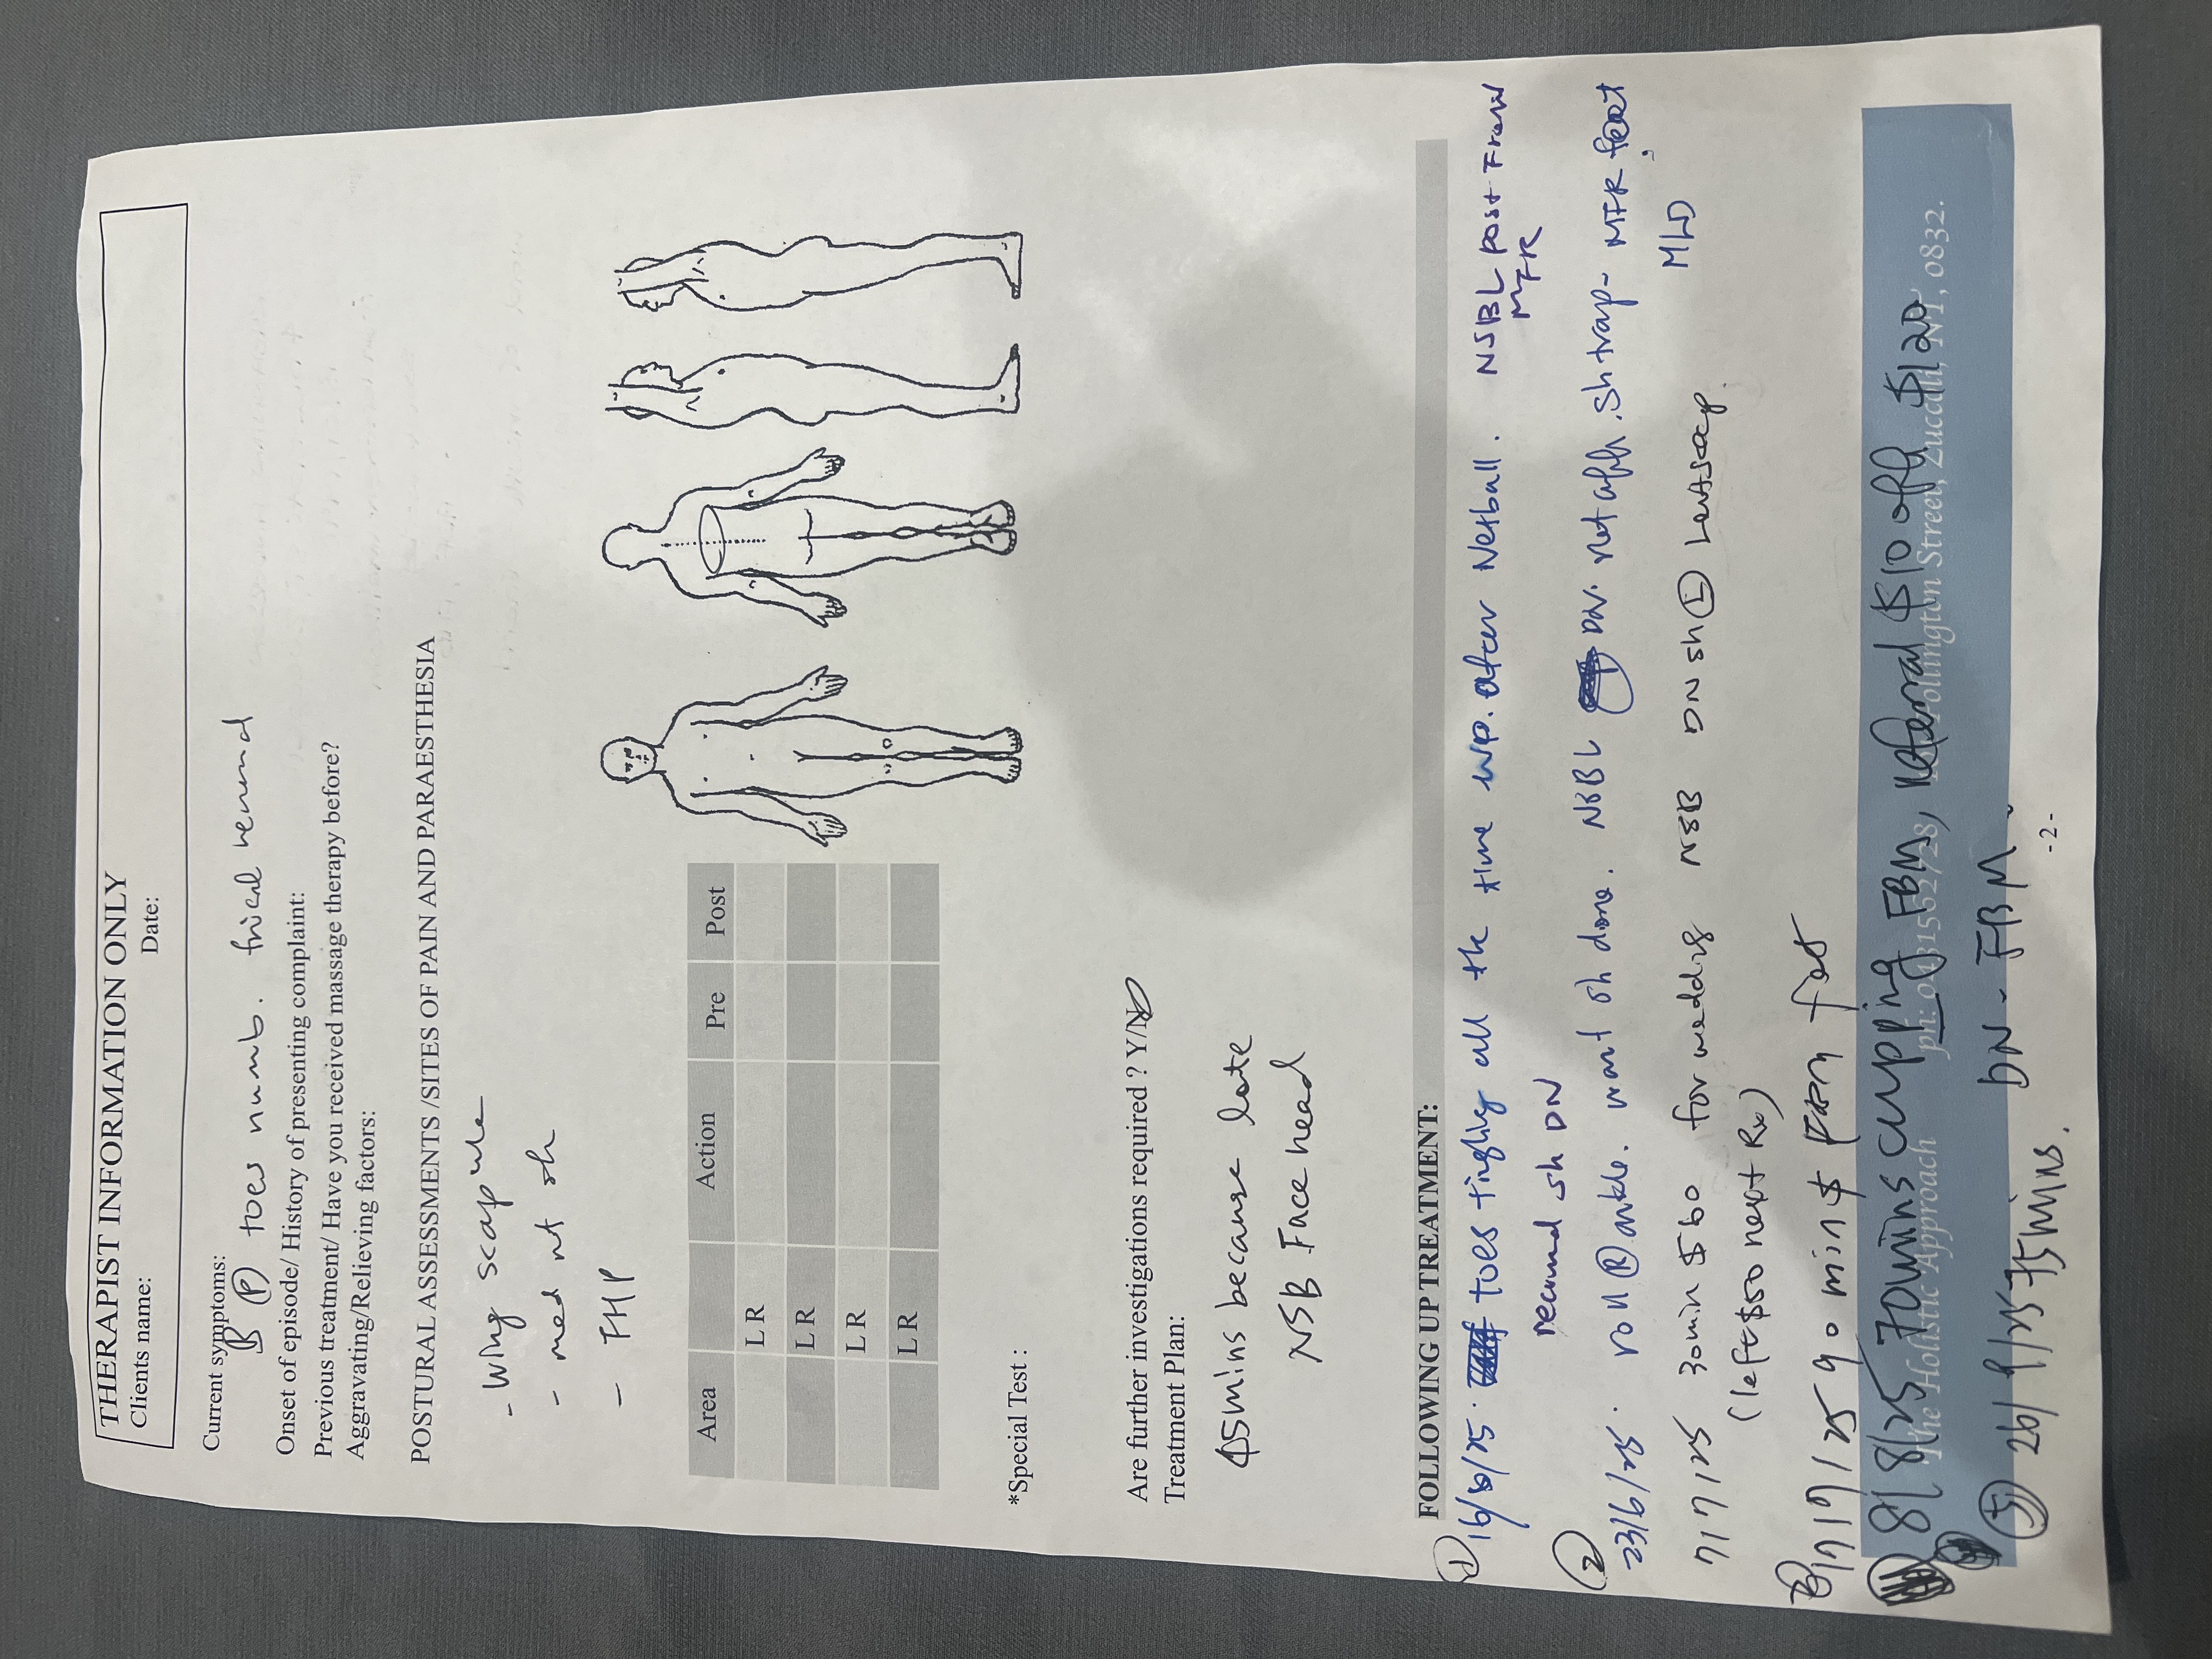 THERAPIST INFORMATION ONLY
Clients name: Date:
Current symptoms:
B (P) toes numb.
Onset of episode/ History of presenting complaint:
Previous treatment/ Have you received massage therapy before?
Aggravating/Relieving factors:
POSTURAL ASSESSMENTS /SITES OF PAIN AND PARAESTHESIA
- wing scapule
- med rot sh
- FHP
Area Action Pre Post
L R
L R
L R
L R
*Special Test :
Are further investigations required ? Y/NO
Treatment Plan:
45mins because late
NSB Face head
FOLLOWING UP TREATMENT:
(1) 16/6/25. toes tinghly all the time wp. after Netball. NSBL post Trow
MFR
recumd sh DN
(2) 23/6/25. roll (R) ankle. want sh done. NSBL DN. not aph. sh trap- MFR foot
MLD
7/7/25 30min $60 for wedding NSB DN sh (L) Levtscap.
(left $50 next Rx)
(3) 17/9/25 90 min $
8/8/25 70mins cupping FBM, referral $10 off $120
The Holistic Approach ph: 0431562728, Street, Zuccoli, NT, 0832.
(5) 26/9/25 75mins. DN - FBM
-2-